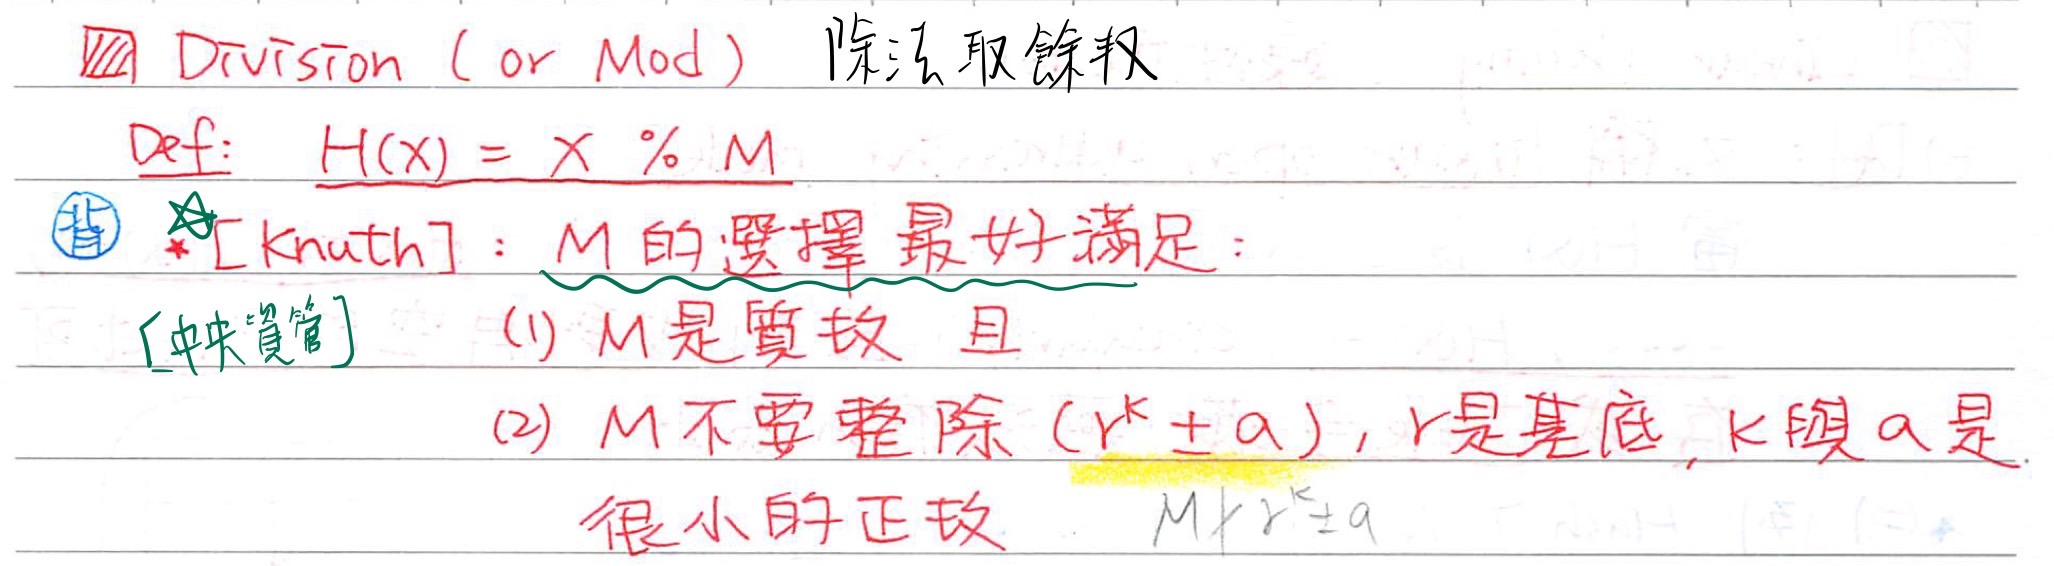 Division (or Mod) 除法取餘数
Def: H(X) = X % M
背 [Knuth]: M 的選擇最好滿足:
[中央資管] (1) M是質数 且
(2) M不要整除 (r^k ± a), r是基底, k與a是
很小的正数 M∤r^k±a